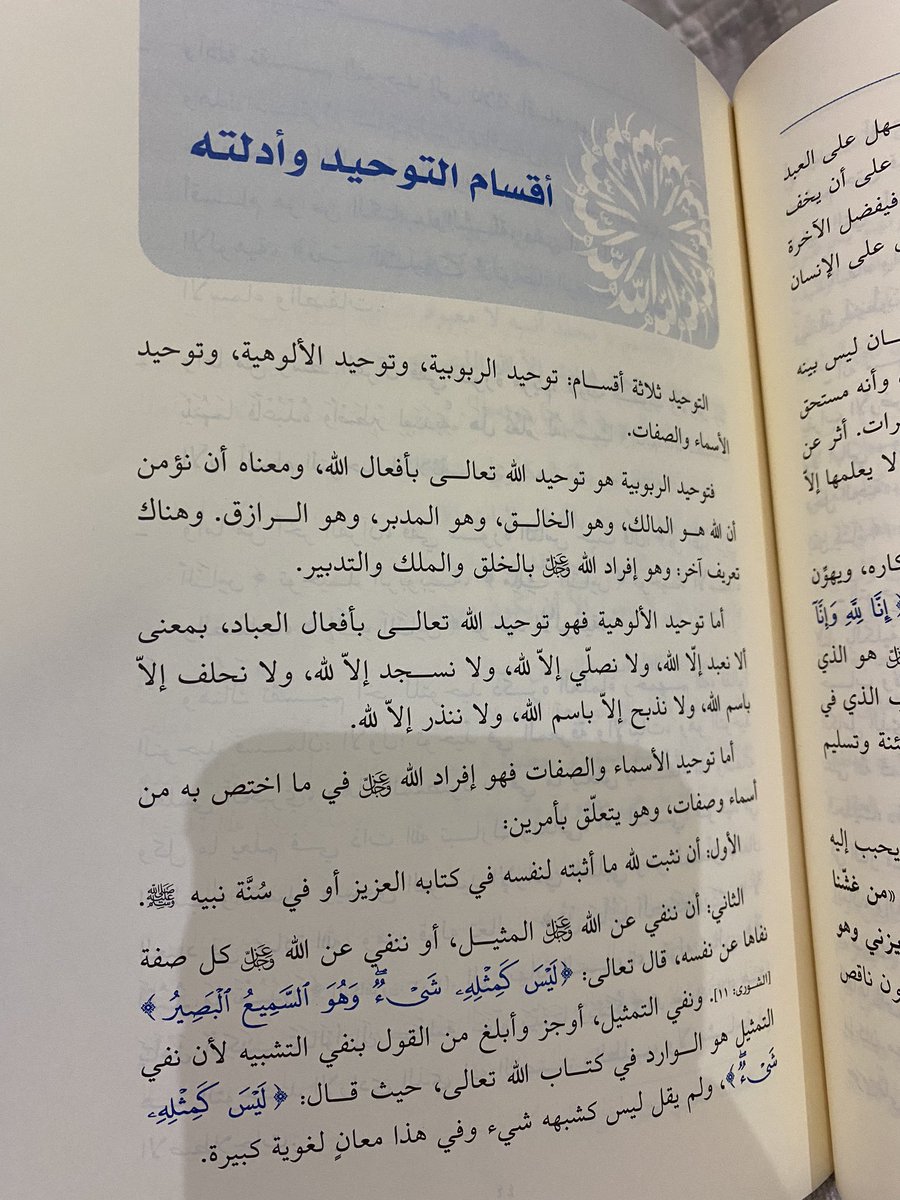 أقسام التوحيد وأدلته
التوحيد ثلاثة أقسام: توحيد الربوبية، وتوحيد الألوهية، وتوحيد
الأسماء والصفات.
فتوحيد الربوبية هو توحيد الله تعالى بأفعال الله، ومعناه أن نؤمن
أن الله هو المالك، وهو الخالق، وهو المدبر، وهو الرازق. وهناك
تعريف آخر: وهو إفراد الله عزوجل بالخلق والملك والتدبير.
أما توحيد الألوهية فهو توحيد الله تعالى بأفعال العباد، بمعنى
ألا نعبد إلّا الله، ولا نصلّي إلاّ لله، ولا نسجد إلاّ لله، ولا نحلف إلاّ
باسم الله، ولا نذبح إلاّ باسم الله، ولا ننذر إلاّ لله.
أما توحيد الأسماء والصفات فهو إفراد الله عزوجل في ما اختص به من
أسماء وصفات، وهو يتعلّق بأمرين:
الأول: أن نثبت لله ما أثبته لنفسه في كتابه العزيز أو في سُنَّة نبيه ﷺ.
الثاني: أن ننفي عن الله عزوجل المثيل، أو ننفي عن الله عزوجل كل صفة
نفاها عن نفسه، قال تعالى: ﴿لَيْسَ كَمِثْلِهِۦ شَىْءٌۖ وَهُوَ ٱلسَّمِيعُ ٱلْبَصِيرُ﴾
[الشورى: ١١]. ونفي التمثيل، أوجز وأبلغ من القول بنفي التشبيه لأن نفي
التمثيل هو الوارد في كتاب الله تعالى، حيث قال: ﴿لَيْسَ كَمِثْلِهِۦ
شَىْءٌۖ﴾، ولم يقل ليس كشبهه شيء وفي هذا معانٍ لغوية كبيرة.
٤٤
هل على العبد
على أن يخف
فيفضل الآخرة
على الإنسان
ان ليس بينه
وأنه مستحق
رات. أثر عن
لا يعلمها إلاّ
كاره، ويهوِّن
﴿إِنَّا لِلَّهِ وَإِنَّآ
هو الذي
ب الذي في
ئنة وتسليم
يحبب إليه
«من غشّنا
يزني وهو
ون ناقص